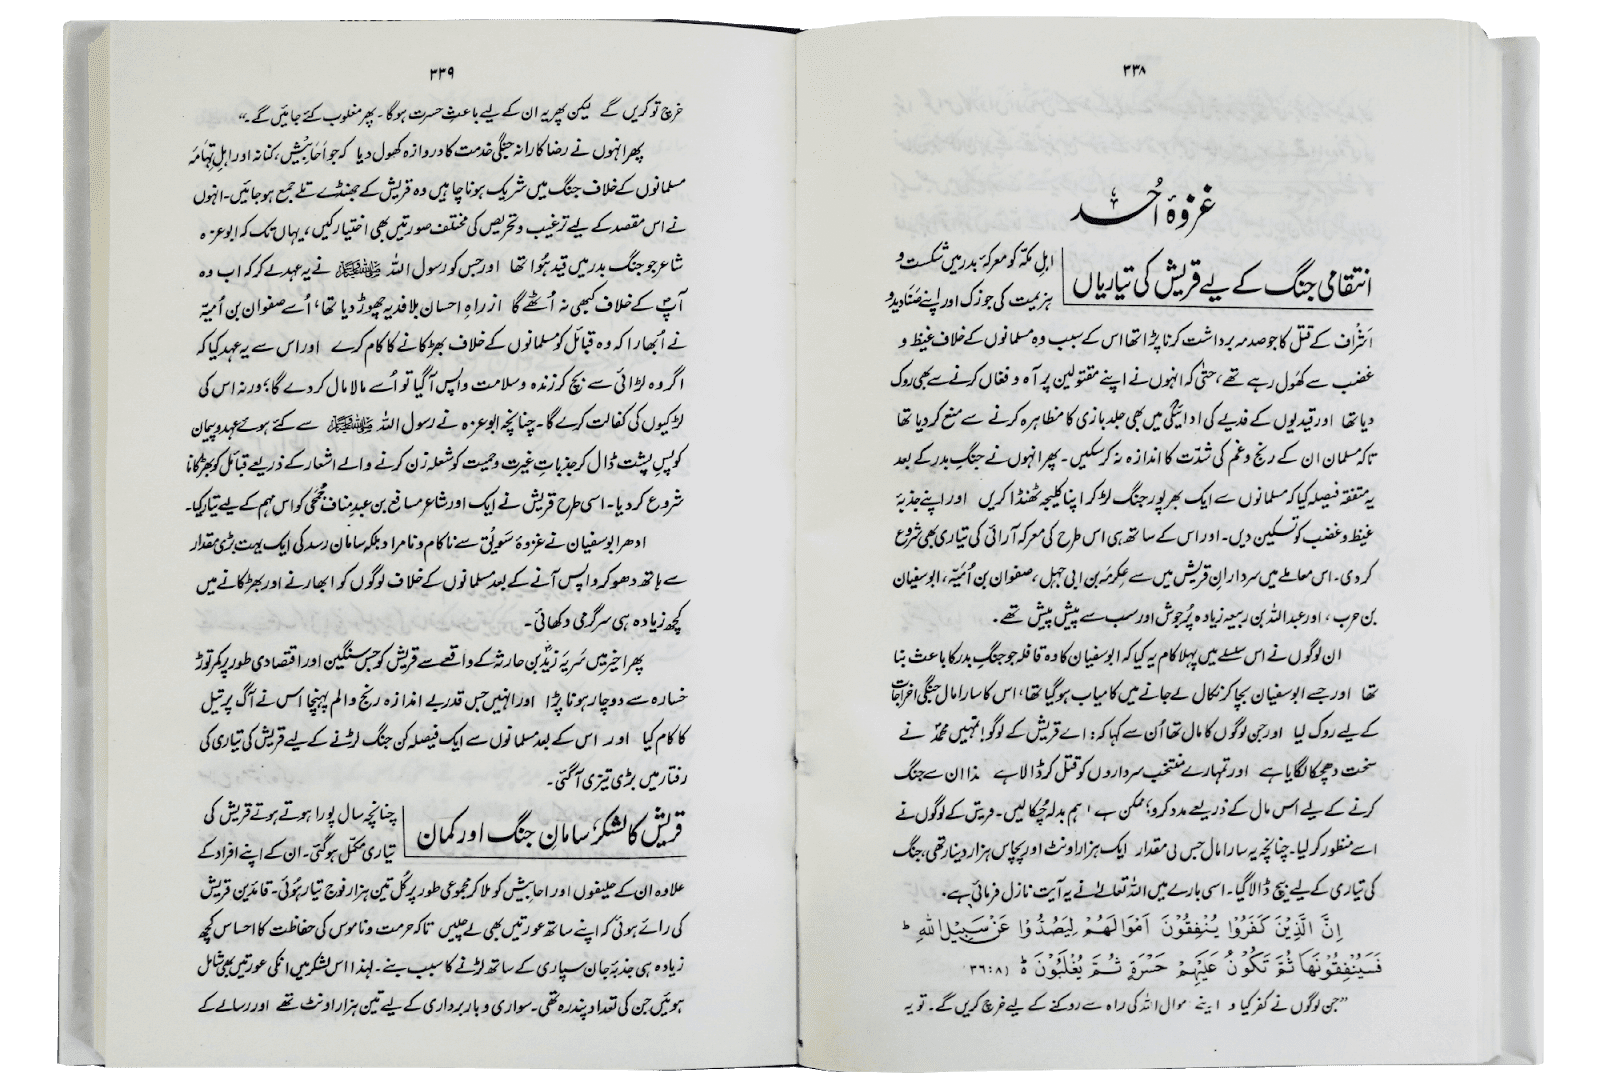 ۳۳۸
غزوۂ اُحد
انتقامی جنگ کے لیے قریش کی تیاریاں
اہلِ مکہ کو معرکۂ بدر میں شکست و
ہزیمت کی جو زک اور اپنے صنادید و
اَشراف کے قتل کا جو صدمہ برداشت کرنا پڑا تھا اس کے سبب وہ مسلمانوں کے خلاف غیظ و
غضب سے کھول رہے تھے، حتیٰ کہ انہوں نے اپنے مقتولین پر آہ و فغاں کرنے سے بھی روک
دیا تھا اور قیدیوں کے فدیے کی ادائیگی میں بھی جلد بازی کا مظاہرہ کرنے سے منع کر دیا تھا
تاکہ مسلمان ان کے رنج و غم کی شدّت کا اندازہ نہ کر سکیں۔ پھر انہوں نے جنگِ بدر کے بعد
یہ متفقہ فیصلہ کیا کہ مسلمانوں سے ایک بھرپور جنگ لڑ کر اپنا کلیجہ ٹھنڈا کریں اور اپنے جذبۂ
غیظ و غضب کو تسکین دیں۔ اور اس کے ساتھ ہی اس طرح کی معرکہ آرائی کی تیاری بھی شروع
کر دی۔ اس معاملے میں سردارانِ قریش میں سے عِکرمہ بن ابی جہل، صفوان بن اُمَیَّہ، ابوسفیان
بن حرب، اور عبداللہ بن ربیعہ زیادہ پُرجوش اور سب سے پیش پیش تھے۔
ان لوگوں نے اس سلسلے میں پہلا کام یہ کیا کہ ابوسفیان کا وہ قافلہ جو جنگِ بدر کا باعث بنا
تھا اور جسے ابوسفیان بچا کر نکال لے جانے میں کامیاب ہو گیا تھا، اس کا سارا مال جنگی اخراجات
کے لیے روک لیا اور جن لوگوں کا مال تھا اُن سے کہا کہ: اے قریش کے لوگو! تمہیں محمدؐ نے
سخت دھچکا لگایا ہے اور تمہارے منتخب سرداروں کو قتل کر ڈالا ہے ہذا ان سے جنگ
کرنے کے لیے اس مال کے ذریعے مدد کرو؛ ممکن ہے ہم بدلہ چُکا لیں۔ قریش کے لوگوں نے
اسے منظور کر لیا۔ چنانچہ یہ سارا مال جس کی مقدار ایک ہزار اونٹ اور پچاس ہزار دینار تھی، جنگ
کی تیاری کے لیے بیچ ڈالا گیا۔ اسی بارے میں اللہ تعالیٰ نے یہ آیت نازل فرمائی ہے۔
اِنَّ الَّذِیْنَ کَفَرُوْا یُنْفِقُوْنَ اَمْوَالَهُمْ لِیَصُدُّوْا عَنْ سَبِیْلِ اللّٰهِ ؕ
فَسَیُنْفِقُوْنَهَا ثُمَّ تَكُوْنُ عَلَیْهِمْ حَسْرَةً ثُمَّ یُغْلَبُوْنَ ؕ (۳۶:۸)
”جن لوگوں نے کفر کیا و اپنے موال اللہ کی راہ سے روکنے کے لیے خرچ کریں گے۔ تو یہ
۳۳۹
خرچ تو کریں گے لیکن پھر یہ ان کے لیے باعثِ حسرت ہوگا۔ پھر مغلوب کئے جائیں گے۔“
پھر انہوں نے رضاکارانہ جنگی خدمت کا دروازہ کھول دیا کہ جو اَحابِیْش، کنانہ اور اہلِ تِہامہ
مسلمانوں کے خلاف جنگ میں شریک ہونا چاہیں وہ قریش کے جھنڈے تلے جمع ہو جائیں۔ انہوں
نے اس مقصد کے لیے ترغیب و تحریص کی مختلف صورتیں بھی اختیار کیں، یہاں تک کہ ابوعزہ
شاعر جو جنگ بدر میں قید ہُوا تھا اور جس کو رسول اللہ ﷺ نے یہ عہد لے کر کہ اب وہ
آپؐ کے خلاف کبھی نہ اُٹھے گا ازراہِ احسان بلا فدیہ چھوڑ دیا تھا، اُسے صفوان بن اُمیّہ
نے اُبھارا کہ وہ قبائل کو مسلمانوں کے خلاف بھڑکانے کا کام کرے اور اس سے یہ عہد کیا کہ
اگر وہ لڑائی سے بچ کر زندہ و سلامت واپس آ گیا تو اُسے مالا مال کر دے گا؛ ورنہ اس کی
لڑکیوں کی کفالت کرے گا۔ چنانچہ ابوعزہ نے رسول اللہ ﷺ سے کئے ہوئے عہد و پیمان
کو پسِ پشت ڈال کر جذباتِ غیرت و حمیت کو شعلہ زن کرنے والے اشعار کے ذریعے قبائل کو بھڑکانا
شروع کر دیا۔ اسی طرح قریش نے ایک اور شاعر مسافع بن عبد مناف جُمَحی کو اس مہم کے لیے تیار کیا۔
ادھر ابوسفیان نے غزوۂ سَوِیْق سے ناکام و نامراد بلکہ سامان رسد کی ایک بہت بڑی مقدار
سے ہاتھ دھو کر واپس آنے کے بعد مسلمانوں کے خلاف لوگوں کو ابھارنے اور بھڑکانے میں
کچھ زیادہ ہی سرگرمی دکھائی۔
پھر اخیر میں سَریہ زیدؓ بن حارثہ کے واقعے سے قریش کو جس سنگین اور اقتصادی طور پر کمر توڑ
خسارہ سے دوچار ہونا پڑا اور انہیں جس قدر بے اندازہ رنج و الم پہنچا اس نے آگ پر تیل
کا کام کیا اور اس کے بعد مسلمانوں سے ایک فیصلہ کن جنگ لڑنے کے لیے قریش کی تیاری کی
رفتار میں بڑی تیزی آ گئی۔
قریش کا لشکر، سامانِ جنگ اور کمان
چنانچہ سال پورا ہوتے ہوتے قریش کی
تیاری مکمّل ہو گئی۔ ان کے اپنے افراد کے
علاوہ ان کے حلیفوں اور احابیش کو ملا کر مجموعی طور پر کُل تین ہزار فوج تیار ہوئی۔ قائدینِ قریش
کی رائے ہوئی کہ اپنے ساتھ عورتیں بھی لے چلیں تاکہ حرمت و ناموس کی حفاظت کا احساس کچھ
زیادہ ہی جذبۂ جان سپاری کے ساتھ لڑنے کا سبب بنے۔ لہٰذا اس لشکر میں انکی عورتیں بھی شامل
ہوئیں جن کی تعداد پندرہ تھی۔ سواری و باربرداری کے لیے تین ہزار اونٹ تھے اور رسالے کے